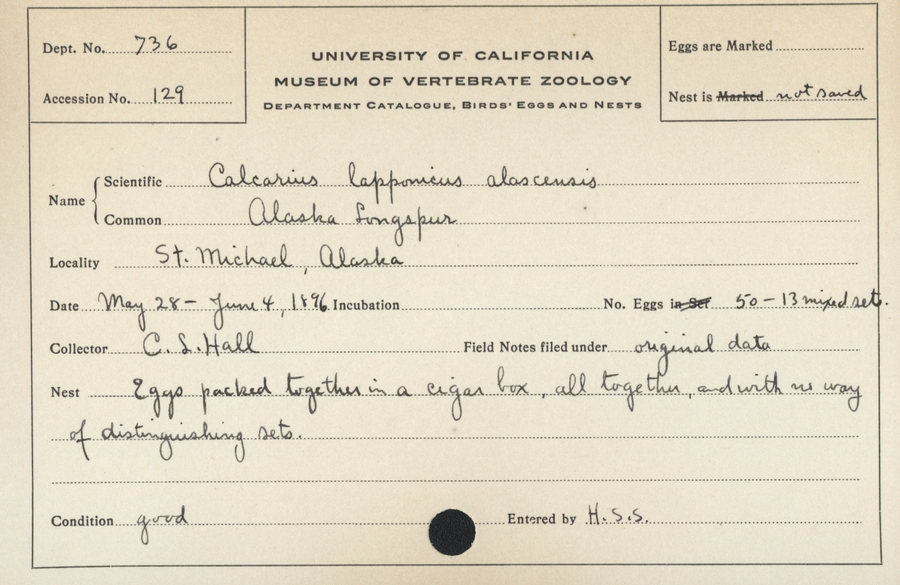 Dept. No. 736
Accession No. 129
UNIVERSITY OF CALIFORNIA
MUSEUM OF VERTEBRATE ZOOLOGY
DEPARTMENT CATALOGUE, BIRDS' EGGS AND NESTS
Eggs are Marked
Nest is Marked not saved
Name
Scientific Calcarius lapponicus alascensis
Common Alaska Longspur
Locality St. Michael, Alaska
Date May 28 - June 4, 1896 Incubation No. Eggs in Set 50 - 13 mixed sets.
Collector C. L. Hall Field Notes filed under original data
Nest Eggs packed together in a cigar box, all together, and with no way
of distinguishing sets.
Condition good Entered by H.S.S.